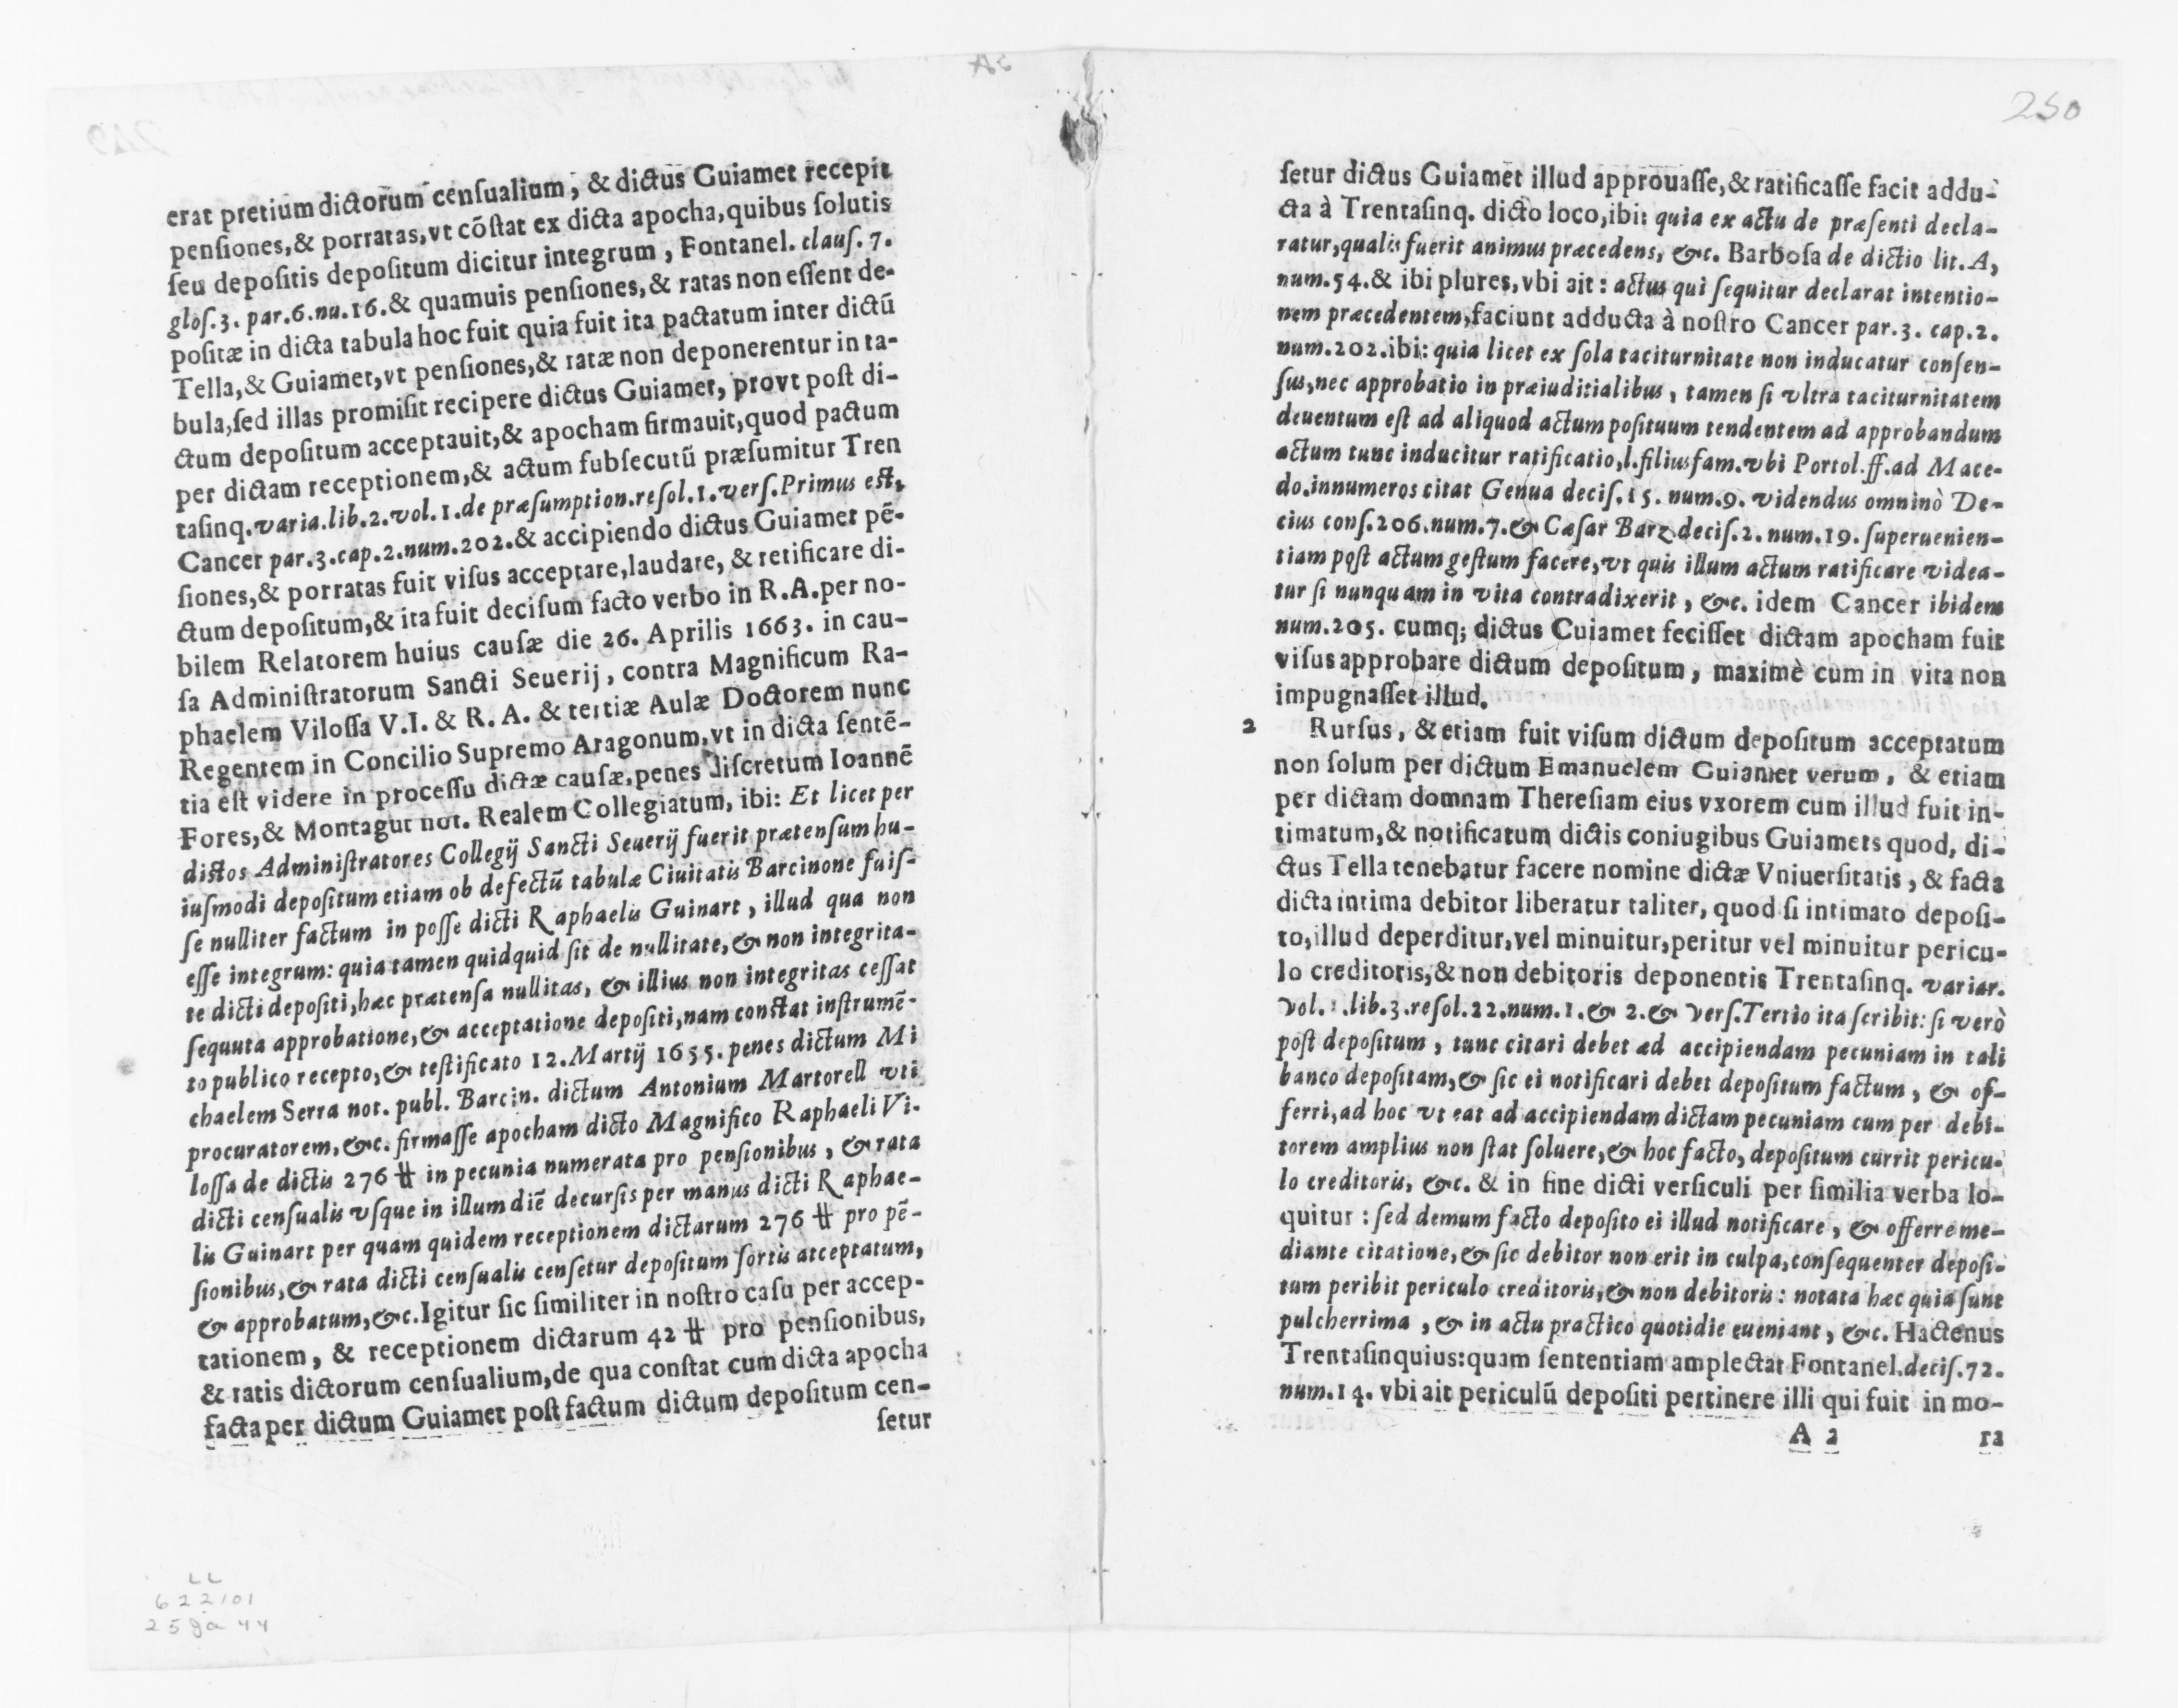 erat pretium dictorum censualium, & dictus Guiamet recepit
pensiones, & porratas, vt cõstat ex dicta apocha, quibus solutis
seu depositis depositum dicitur integrum, Fontanel. claus. 7.
glos. 3. par. 6. nu. 16. & quamuis pensiones, & ratas non essent de-
positæ in dicta tabula hoc fuit quia fuit ita pactatum inter dictũ
Tella, & Guiamet, vt pensiones, & ratæ non deponerentur in ta-
bula, sed illas promisit recipere dictus Guiamet, provt post di-
ctum depositum acceptauit, & apocham firmauit, quod pactum
per dictam receptionem, & actum subsecutũ præsumitur Tren
tasinq. varia. lib. 2. vol. 1. de præsumption. resol. 1. vers. Primus est,
Cancer par. 3. cap. 2. num. 202. & accipiendo dictus Guiamet pẽ-
siones, & porratas fuit visus acceptare, laudare, & retificare di-
ctum depositum, & ita fuit decisum facto verbo in R. A. per no-
bilem Relatorem huius causæ die 26. Aprilis 1663. in cau-
sa Administratorum Sancti Seuerij, contra Magnificum Ra-
phaelem Vilossa V.I. & R. A. & tertiæ Aulæ Doctorem nunc
Regentem in Concilio Supremo Aragonum, vt in dicta sentẽ-
tia est videre in processu dictæ causæ, penes discretum Ioannẽ
Fores, & Montagut not. Realem Collegiatum, ibi: Et licet per
dictos Administratores Collegij Sancti Seuerij fuerit prætensum hu-
iusmodi depositum etiam ob defectũ tabulæ Ciuitatis Barcinone fuis-
se nulliter factum in posse dicti Raphaelis Guinart, illud qua non
esse integrum: quia tamen quidquid sit de nullitate, & non integrita-
te dicti depositi, hæc prætensa nullitas, & illius non integritas cessat
sequuta approbatione, & acceptatione depositi, nam constat instrumẽ-
to publico recepto, & testificato 12. Martij 1655. penes dictum Mi
chaelem Serra not. publ. Barcin. dictum Antonium Martorell vti
procuratorem, &c. firmasse apocham dicto Magnifico Raphaeli Vi-
lossa de dictis 276 ⵌ in pecunia numerata pro pensionibus, & rata
dicti censualis vsque in illum diẽ decursis per manus dicti Raphae-
lis Guinart per quam quidem receptionem dictarum 276 ⵌ pro pẽ-
sionibus, & rata dicti censualis censetur depositum sortis atceptatum,
& approbatum, &c. Igitur sic similiter in nostro casu per accep-
tationem, & receptionem dictarum 42 ⵌ pro pensionibus,
& ratis dictorum censualium, de qua constat cum dicta apocha
facta per dictum Guiamet post factum dictum depositum cen-
setur
LL
622101
259a 44
250
setur dictus Guiamet illud approuasse, & ratificasse facit addu-
cta à Trentasinq. dicto loco, ibi: quia ex actu de præsenti decla-
ratur, qualis fuerit animus præcedens, &c. Barbosa de dictio lit. A,
num. 54. & ibi plures, vbi ait: actus qui sequitur declarat intentio-
nem præcedentem, faciunt adducta à nostro Cancer par. 3. cap. 2.
num. 202. ibi: quia licet ex sola taciturnitate non inducatur consen-
sus, nec approbatio in præiuditialibus, tamen si vltra taciturnitatem
deuentum est ad aliquod actum posituum tendentem ad approbandum
actum tunc inducitur ratificatio, l. filiusfam. vbi Portol. ff. ad Mace-
do. innumeros citat Genua decis. 15. num. 9. videndus omninò De-
cius cons. 206. num. 7. & Cæsar Barz. decis. 2. num. 19. superuenien-
tiam post actum gestum facere, vt quis illum actum ratificare videa-
tur si nunquam in vita contradixerit, &c. idem Cancer ibidem
num. 205. cumq; dictus Cuiamet fecisset dictam apocham fuit
visus approbare dictum depositum, maximè cum in vita non
impugnasset illud.
2 Rursus, & etiam fuit visum dictum depositum acceptatum
non solum per dictum Emanuelem Guiamet verum, & etiam
per dictam domnam Theresiam eius vxorem cum illud fuit in-
timatum, & notificatum dictis coniugibus Guiamets quod, di-
ctus Tella tenebatur facere nomine dictæ Vniuersitatis, & facta
dicta intima debitor liberatur taliter, quod si intimato deposi-
to, illud deperditur, vel minuitur, peritur vel minuitur pericu-
lo creditoris, & non debitoris deponentis Trentasinq. variar.
vol. 1. lib. 3. resol. 22. num. 1. & 2. & vers. Tertio ita scribit: si verò
post depositum, tunc citari debet ad accipiendam pecuniam in tali
banco depositam, & sic ei notificari debet depositum factum, & of-
ferri, ad hoc vt eat ad accipiendam dictam pecuniam cum per debi-
torem amplius non stat soluere, & hoc facto, depositum currit pericu-
lo creditoris, &c. & in fine dicti versiculi per similia verba lo-
quitur: sed demum facto deposito ei illud notificare, & offerre me-
diante citatione, & sic debitor non erit in culpa, consequenter deposi-
tum peribit periculo creditoris, & non debitoris: notata hæc quia sunt
pulcherrima, & in actu practico quotidie eueniant, &c. Hactenus
Trentasinquius: quam sententiam amplectat Fontanel. decis. 72.
num. 14. vbi ait periculũ depositi pertinere illi qui fuit in mo-
A 2 ra